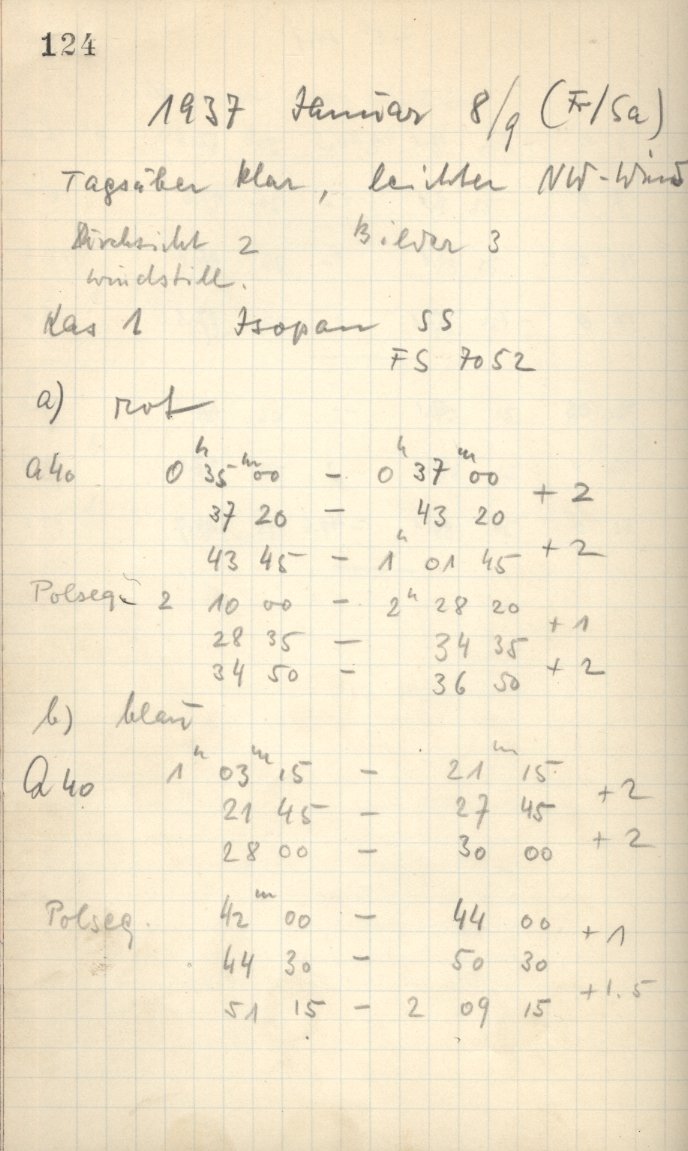 124
1937 Januar 8/9 (Fr/Sa)
Tagsüber klar, leichter NW-Wind
Durchsicht 2 Bilder 3
windstill.
Kas 1 Isopan SS
FS 7052
a) rot
Q40 0h 35m 00 – 0h 37m 00
37 20 – 43 20 +2
43 45 – 1h 01 45 +2
Polseq. 2 10 00 – 2h 28 20
28 35 – 34 35 +1
34 50 – 36 50 +2
b) blau
Q40 1h 03m 15 – 21m 15
21 45 – 27 45 +2
28 00 – 30 00 +2
Polseq. 42m 00 – 44 00
44 30 – 50 30 +1
51 15 – 2 09 15 +1.5